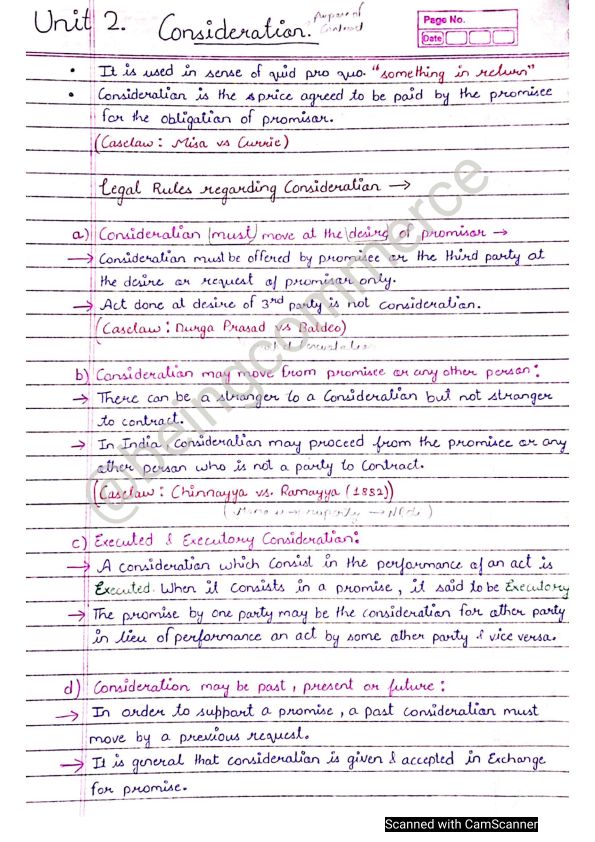 Unit 2. Consideration. Purpose of Contract
Page No.
Date
• It is used in sense of quid pro quo. "something in return"
• Consideration is the sprice agreed to be paid by the promisee
for the obligation of promisor.
(Caselaw: Misa vs Currie)
Legal Rules regarding Consideration →
a) Consideration (must) move at the desire of promisor →
→ Consideration must be offered by promisee or the third party at
the desire or request of promisor only.
→ Act done at desire of 3rd party is not consideration.
(Caselaw: Durga Prasad vs Baldeo)
b) Consideration may move from promisee or any other person:
→ There can be a stranger to a Consideration but not stranger
to contract.
→ In India, consideration may proceed from the promisee or any
other person who is not a party to Contract.
(Caselaw: Chinnayya vs. Ramayya (1882))
c) Executed & Executory Consideration:
→ A consideration which consist in the performance of an act is
Executed. When it consists in a promise, it said to be Executory
→ The promise by one party may be the consideration for other party
in lieu of performance an act by some other party & vice versa.
d) Consideration may be past, present or future:
→ In order to support a promise, a past consideration must
move by a previous request.
→ It is general that consideration is given & accepted in Exchange
for promise.
@beingcommerce
Scanned with CamScanner